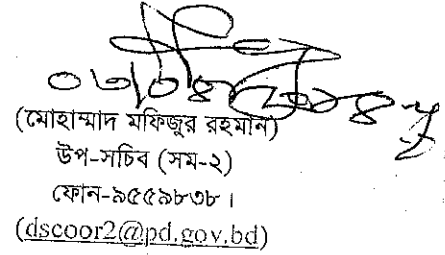 (মোহাম্মাদ মফিজুর রহমান)
উপ-সচিব (সম-২)
ফোন-৯৫৫৯৮৩৮।
(dscoor2@pd.gov.bd)